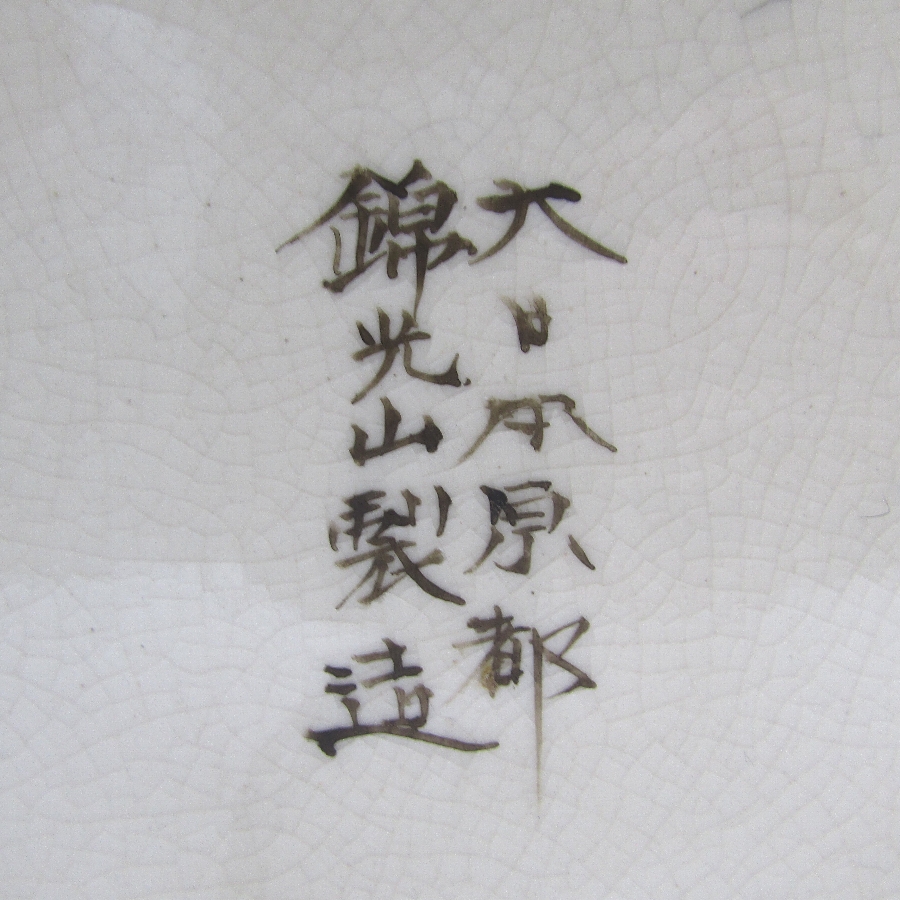 大日本京都
錦光山製造